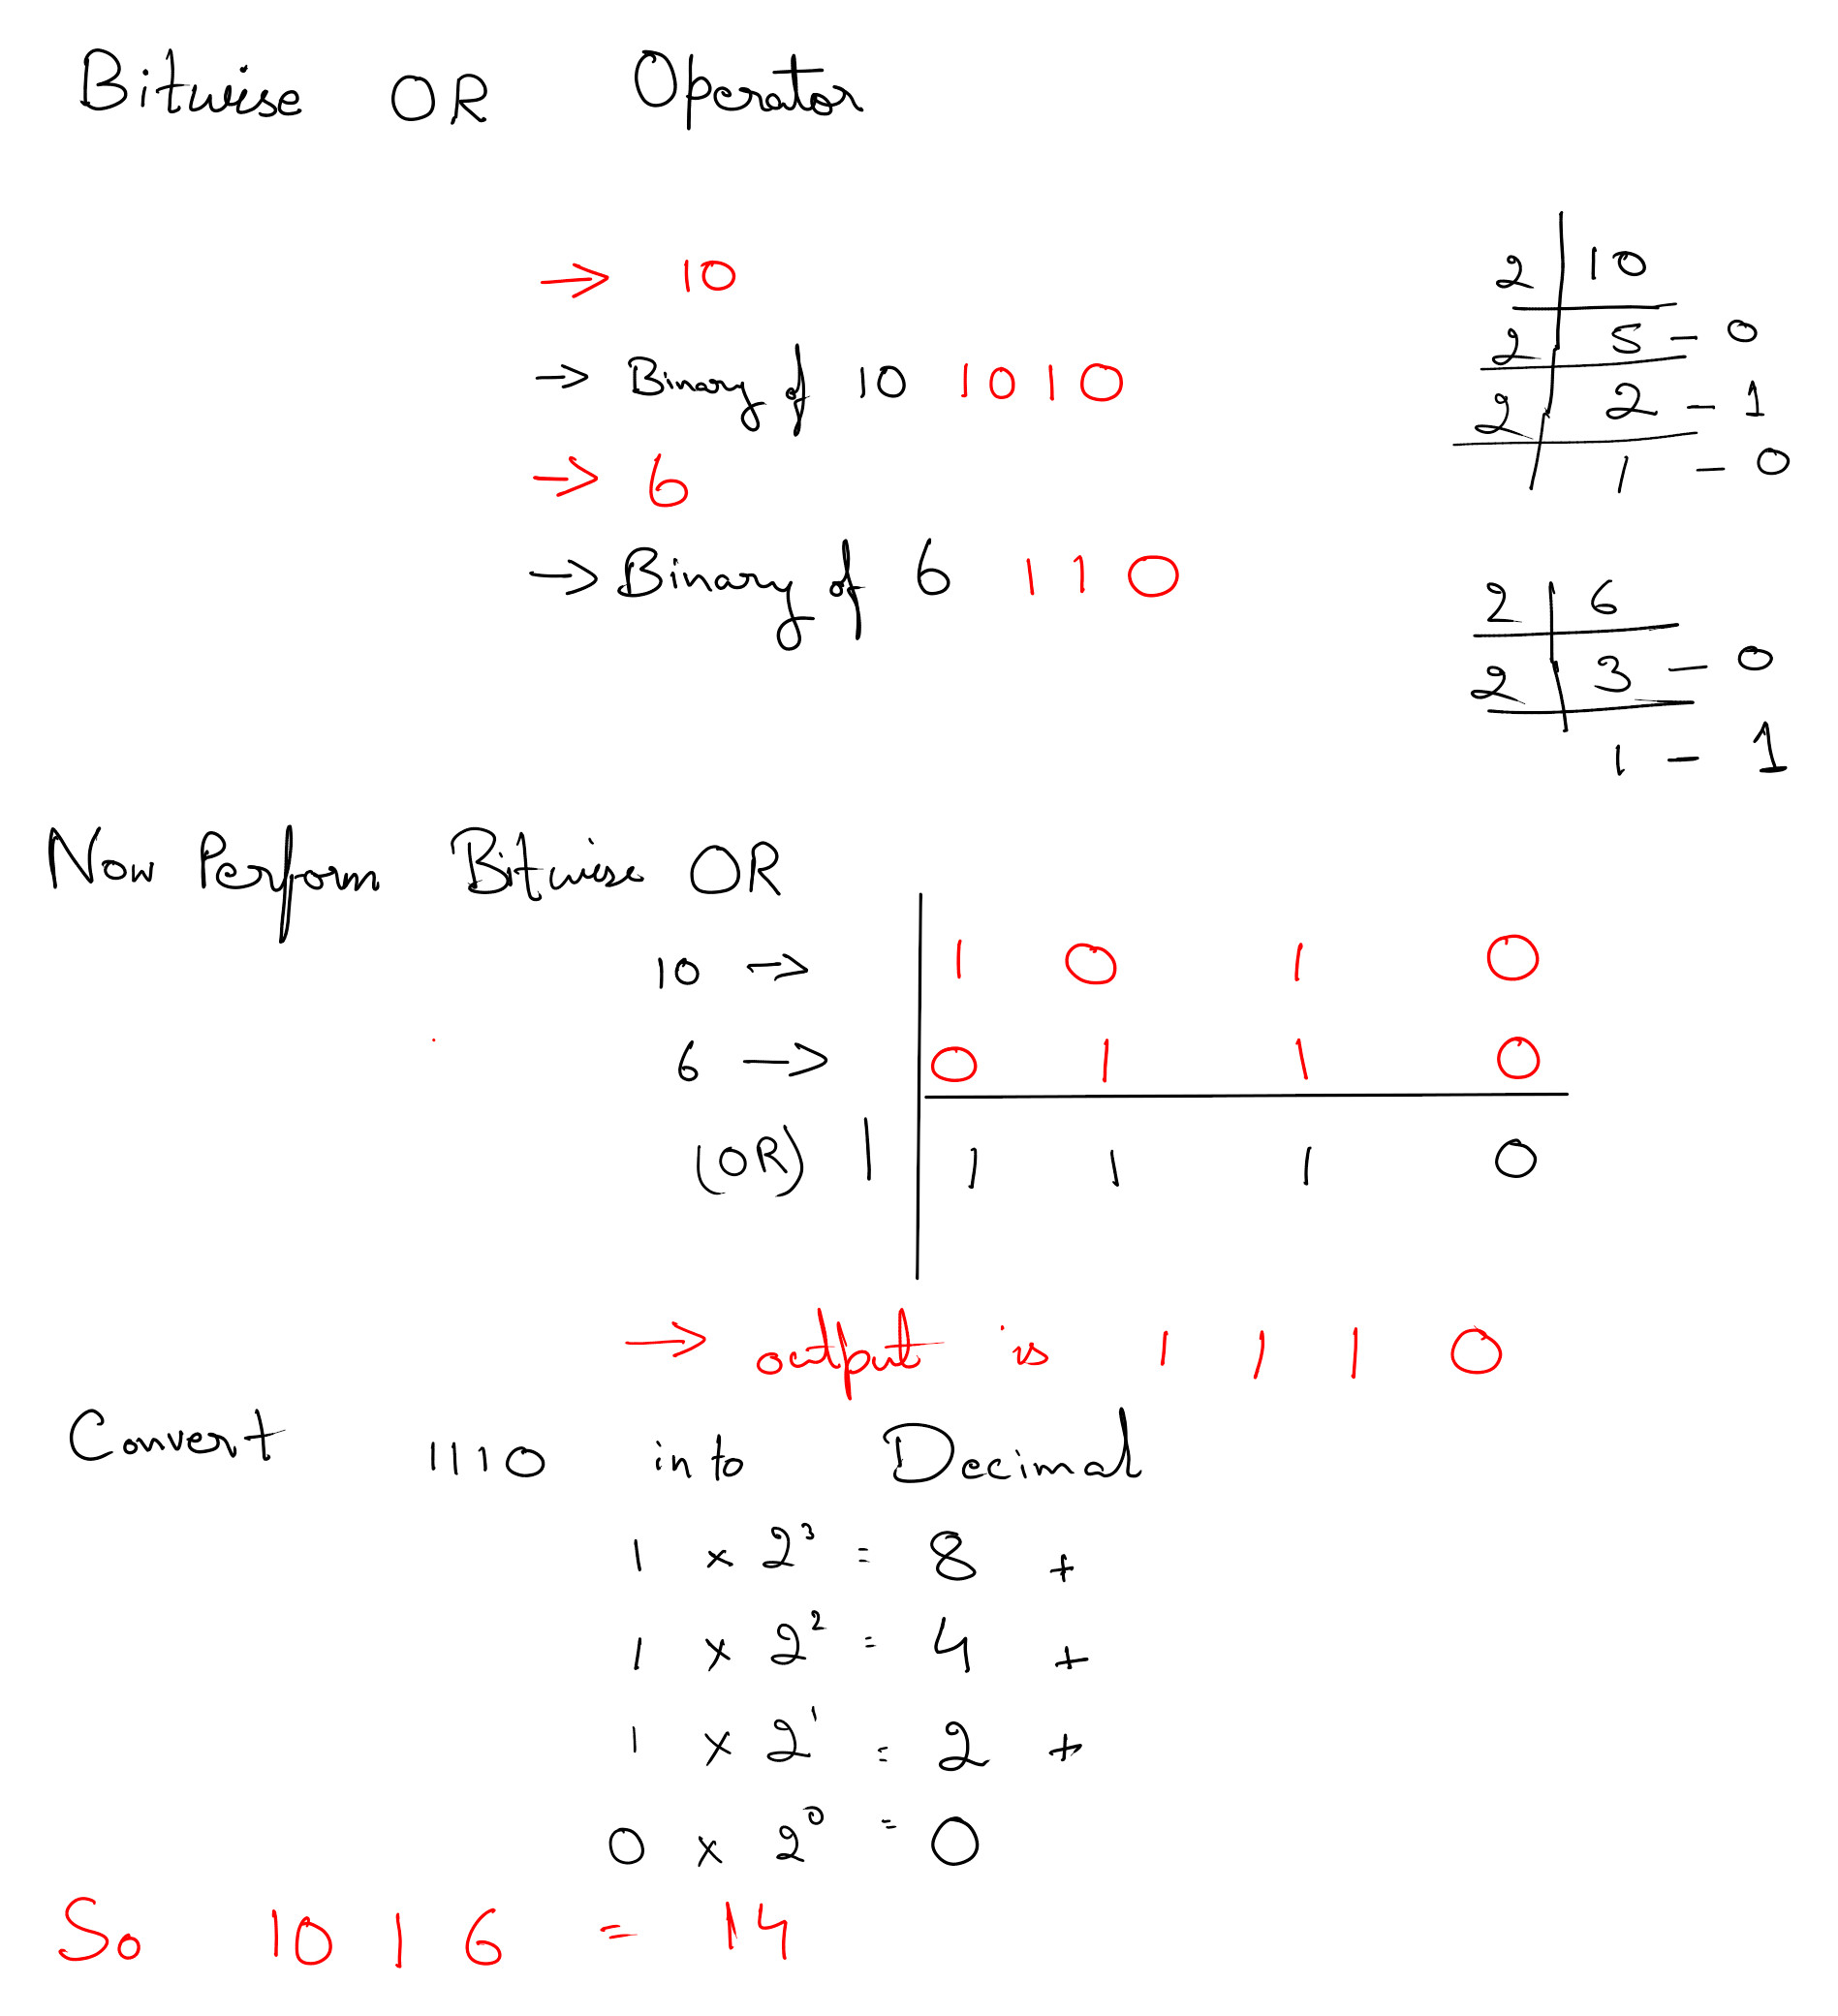 Bitwise OR Operator
→ 10
→ Binary of 10 1010
→ 6
→ Binary of 6 110
2 | 10
2 | 5 - 0
2 | 2 - 1
1 - 0
2 | 6
2 | 3 - 0
1 - 1
Now Perform Bitwise OR
10 → 1 0 1 0
6 → 0 1 1 0
(OR) | 1 1 1 0
→ output is 1 1 1 0
Convert 1110 into Decimal
1 × 2³ = 8 +
1 × 2² = 4 +
1 × 2¹ = 2 +
0 × 2⁰ = 0
So 10 | 6 = 14